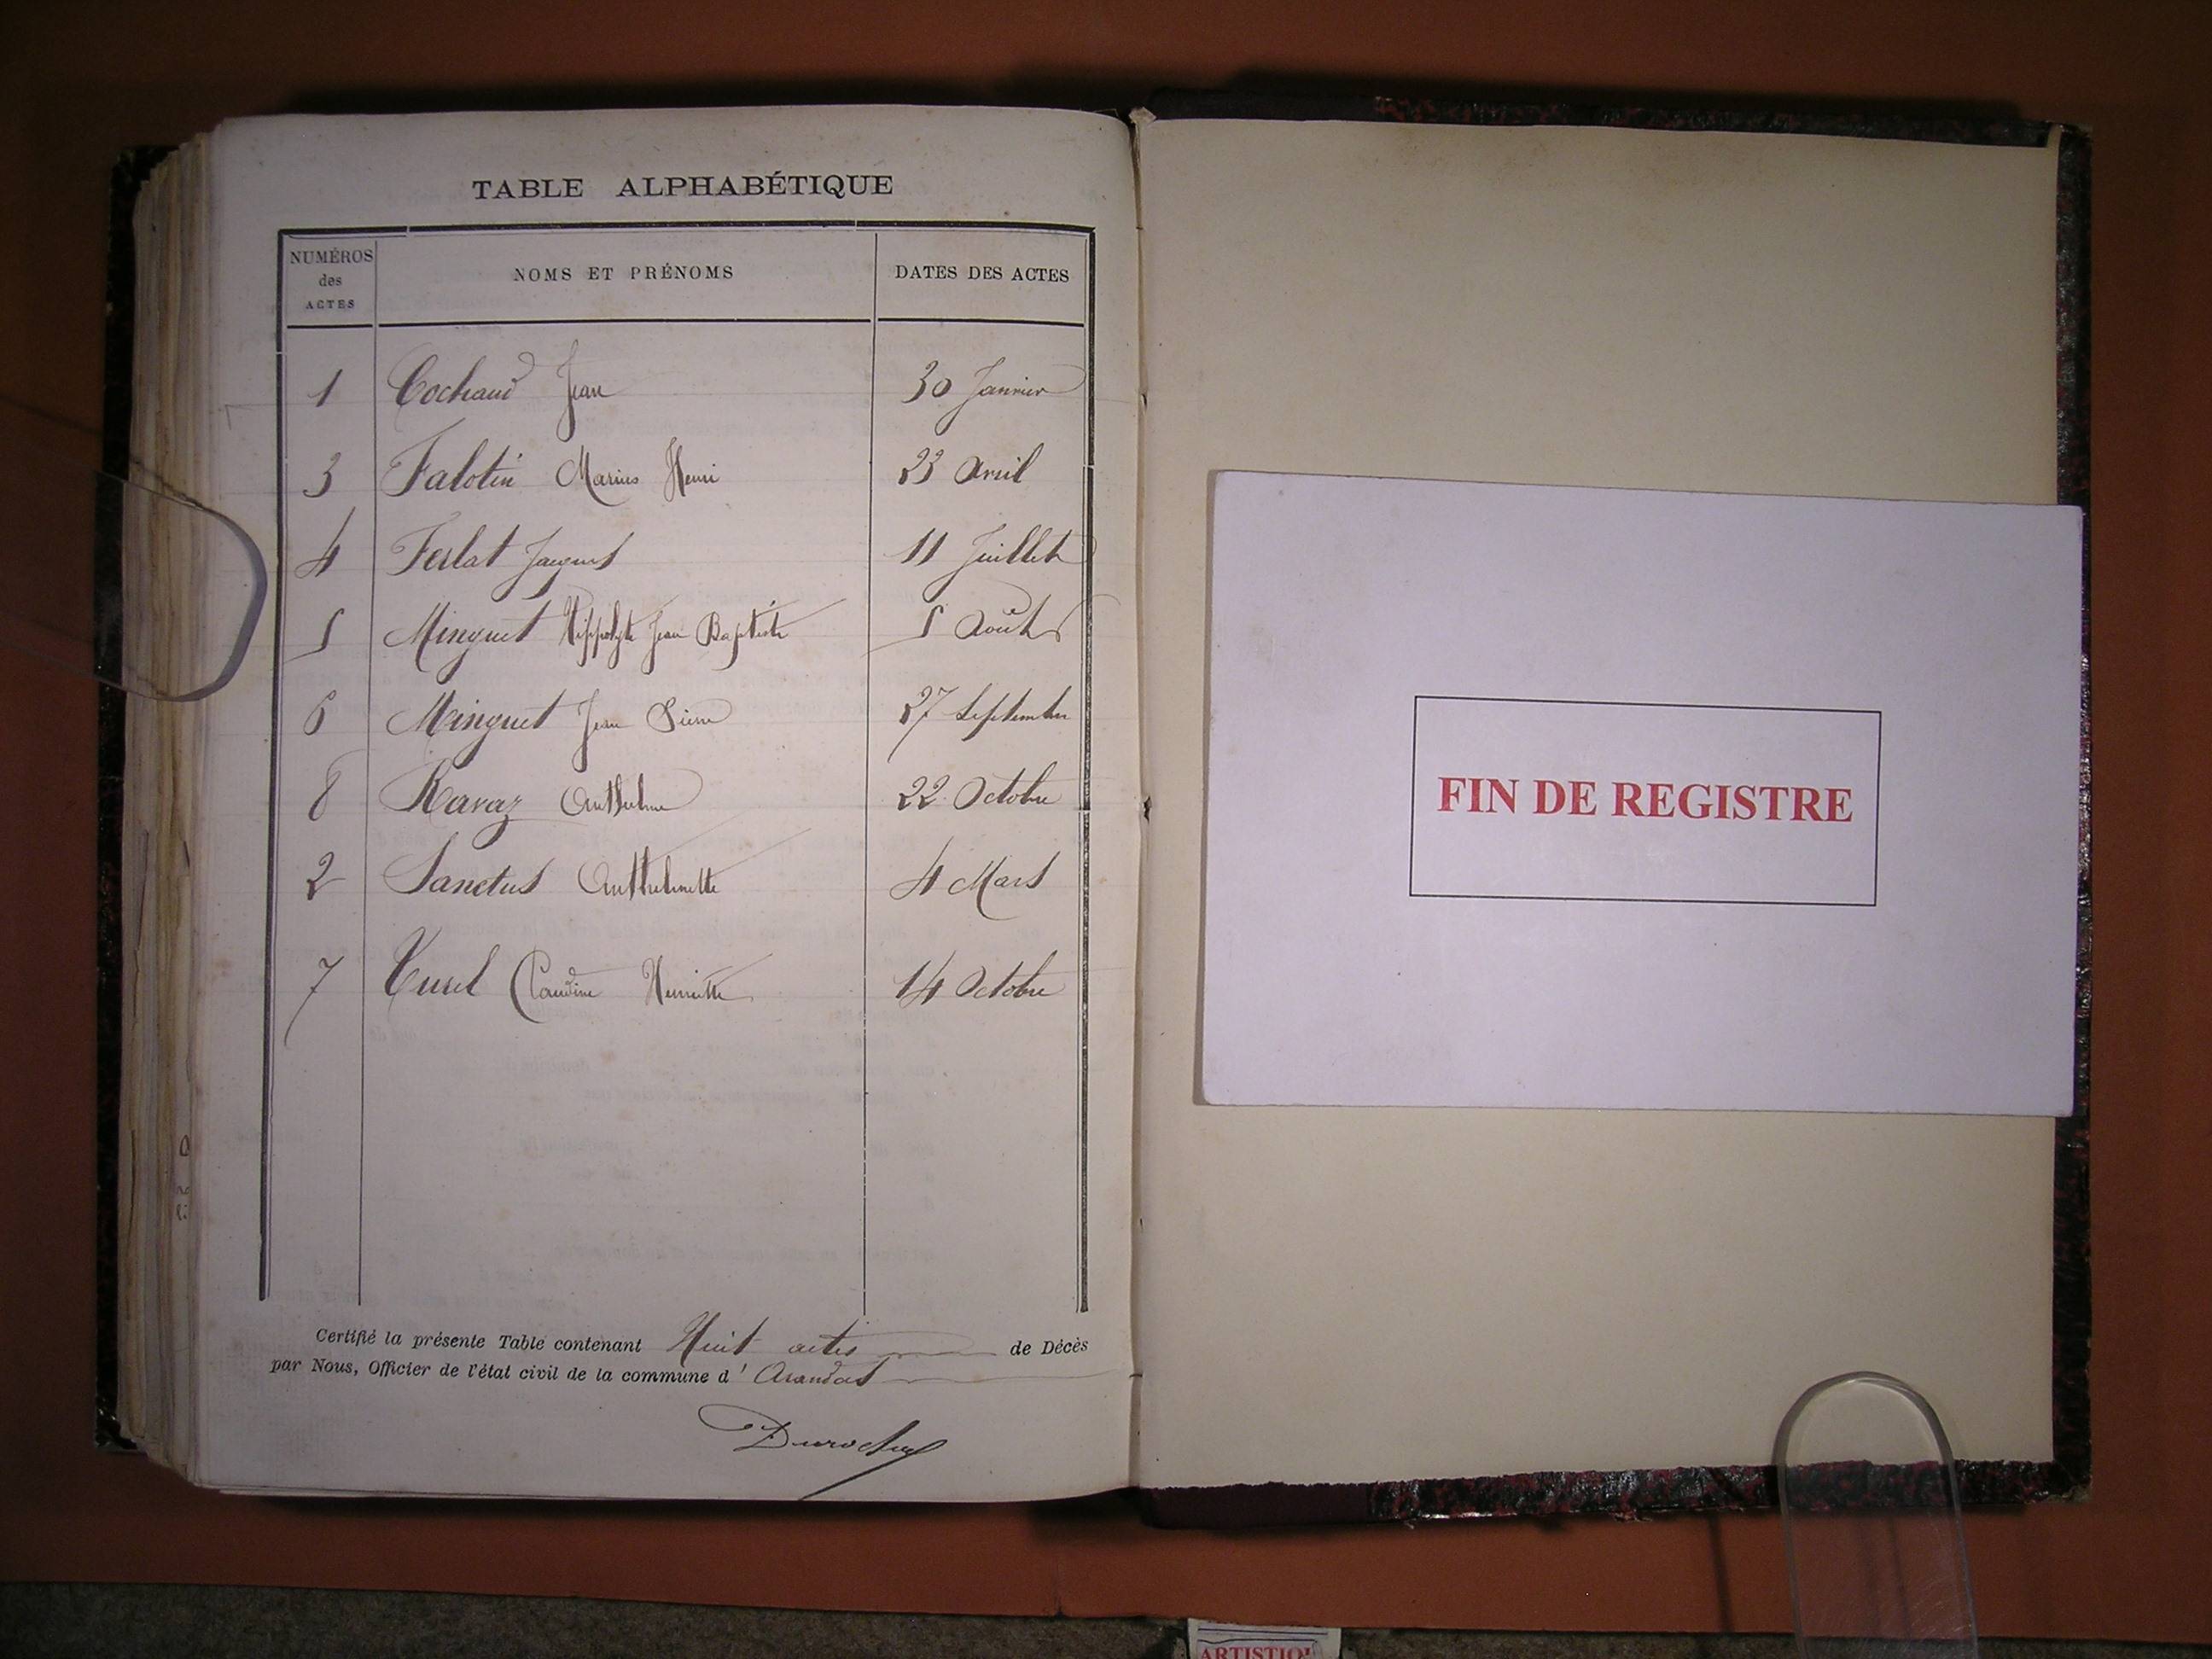 TABLE ALPHABÉTIQUE
NUMÉROS des ACTES NOMS ET PRÉNOMS DATES DES ACTES
1 Cochaud Jean 30 Janvier
3 Falotin Marius Henri 23 Avril
4 Ferlat Jacques 11 Juillet
5 Minguet Hippolyte Jean Baptiste 5 Août
6 Minguet Jean Pierre 27 Septembre
8 Ravaz Anthelme 22 Octobre
2 Sanctus Anthelmette 4 Mars
7 Claudine Henriette 14 Octobre
Certifié la présente Table contenant Huit actes de Décès
par Nous, Officier de l'état civil de la commune d' Arandas
FIN DE REGISTRE